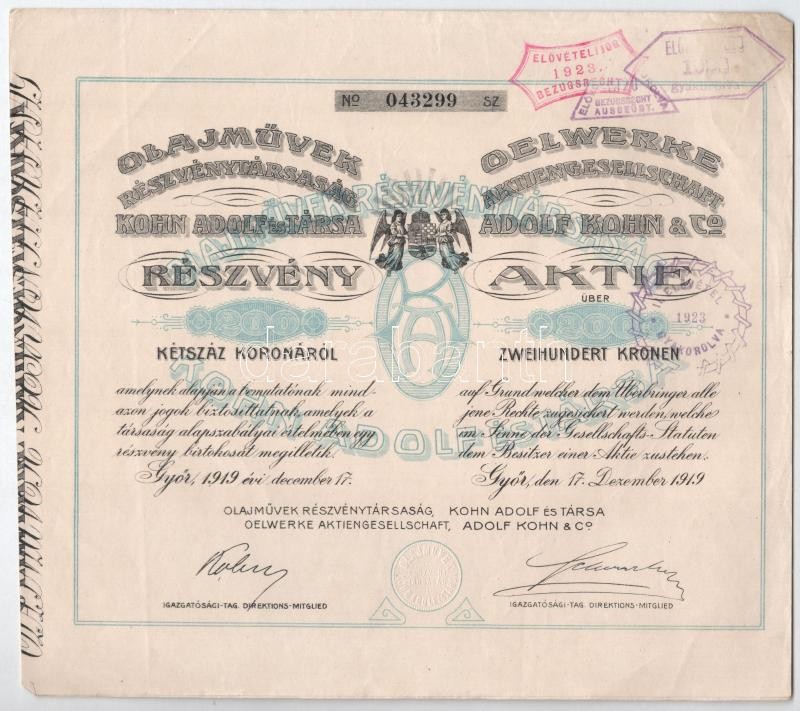 ELŐVÉTELI JOG
1923.
BEZUGSRECHT
BEZUGSRECHT
AUSGEÜBT.
gyakorolva
No 043299 SZ.
OLAJMŰVEK
RÉSZVÉNYTÁRSASÁG
KOHN ADOLF ÉS TÁRSA
RÉSZVÉNY
200
KÉTSZÁZ KORONÁRÓL
amelynek alapján a bemutatónak mind-
azon jogok biztosíttatnak, amelyek a
társaság alapszabályai értelmében egy
részvény birtokosát megilletik.
Győr, 1919 évi december 17.
OELWERKE
AKTIENGESELLSCHAFT
ADOLF KOHN & Co
AKTIE
ÜBER
200
ZWEIHUNDERT KRONEN
auf Grund welcher dem Überbringer alle
jene Rechte zugesichert werden, welche
im Sinne der Gesellschafts-Statuten
dem Besitzer einer Aktie zustehen.
Győr, den 17. Dezember 1919
OLAJMŰVEK RÉSZVÉNYTÁRSASÁG
KOHN ADOLF ÉS TÁRSA
1923
GYAKOROLVA
darabanth
OLAJMŰVEK RÉSZVÉNYTÁRSASÁG, KOHN ADOLF ÉS TÁRSA
OELWERKE AKTIENGESELLSCHAFT, ADOLF KOHN & Co
IGAZGATÓSÁGI-TAG. DIREKTIONS-MITGLIED
IGAZGATÓSÁGI-TAG. DIREKTIONS-MITGLIED